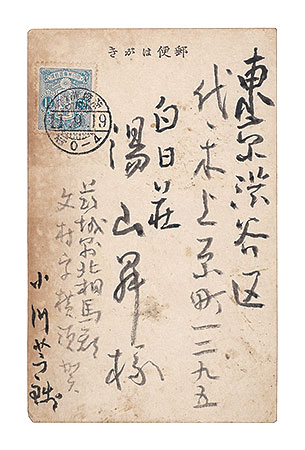 郵便はがき
東京渋谷区
代々木上原町一二九五
白日荘
湯山昇様
茨城県北相馬郡
文村字横須賀
小川芋銭
11.9.19